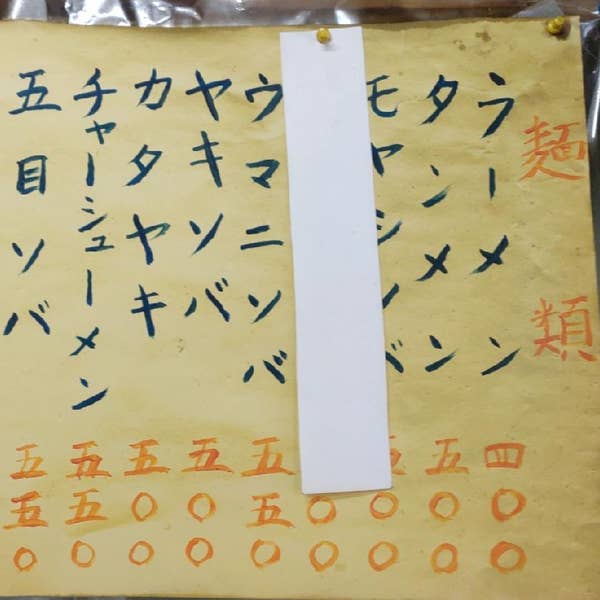 麺類
ラーメン 四〇〇
タンメン 五〇〇
モヤシソバ 五〇〇
〇〇
ウマニソバ 五五〇
ヤキソバ 五〇〇
カタヤキ 五〇〇
チャーシューメン 五五〇
五目ソバ 五五〇